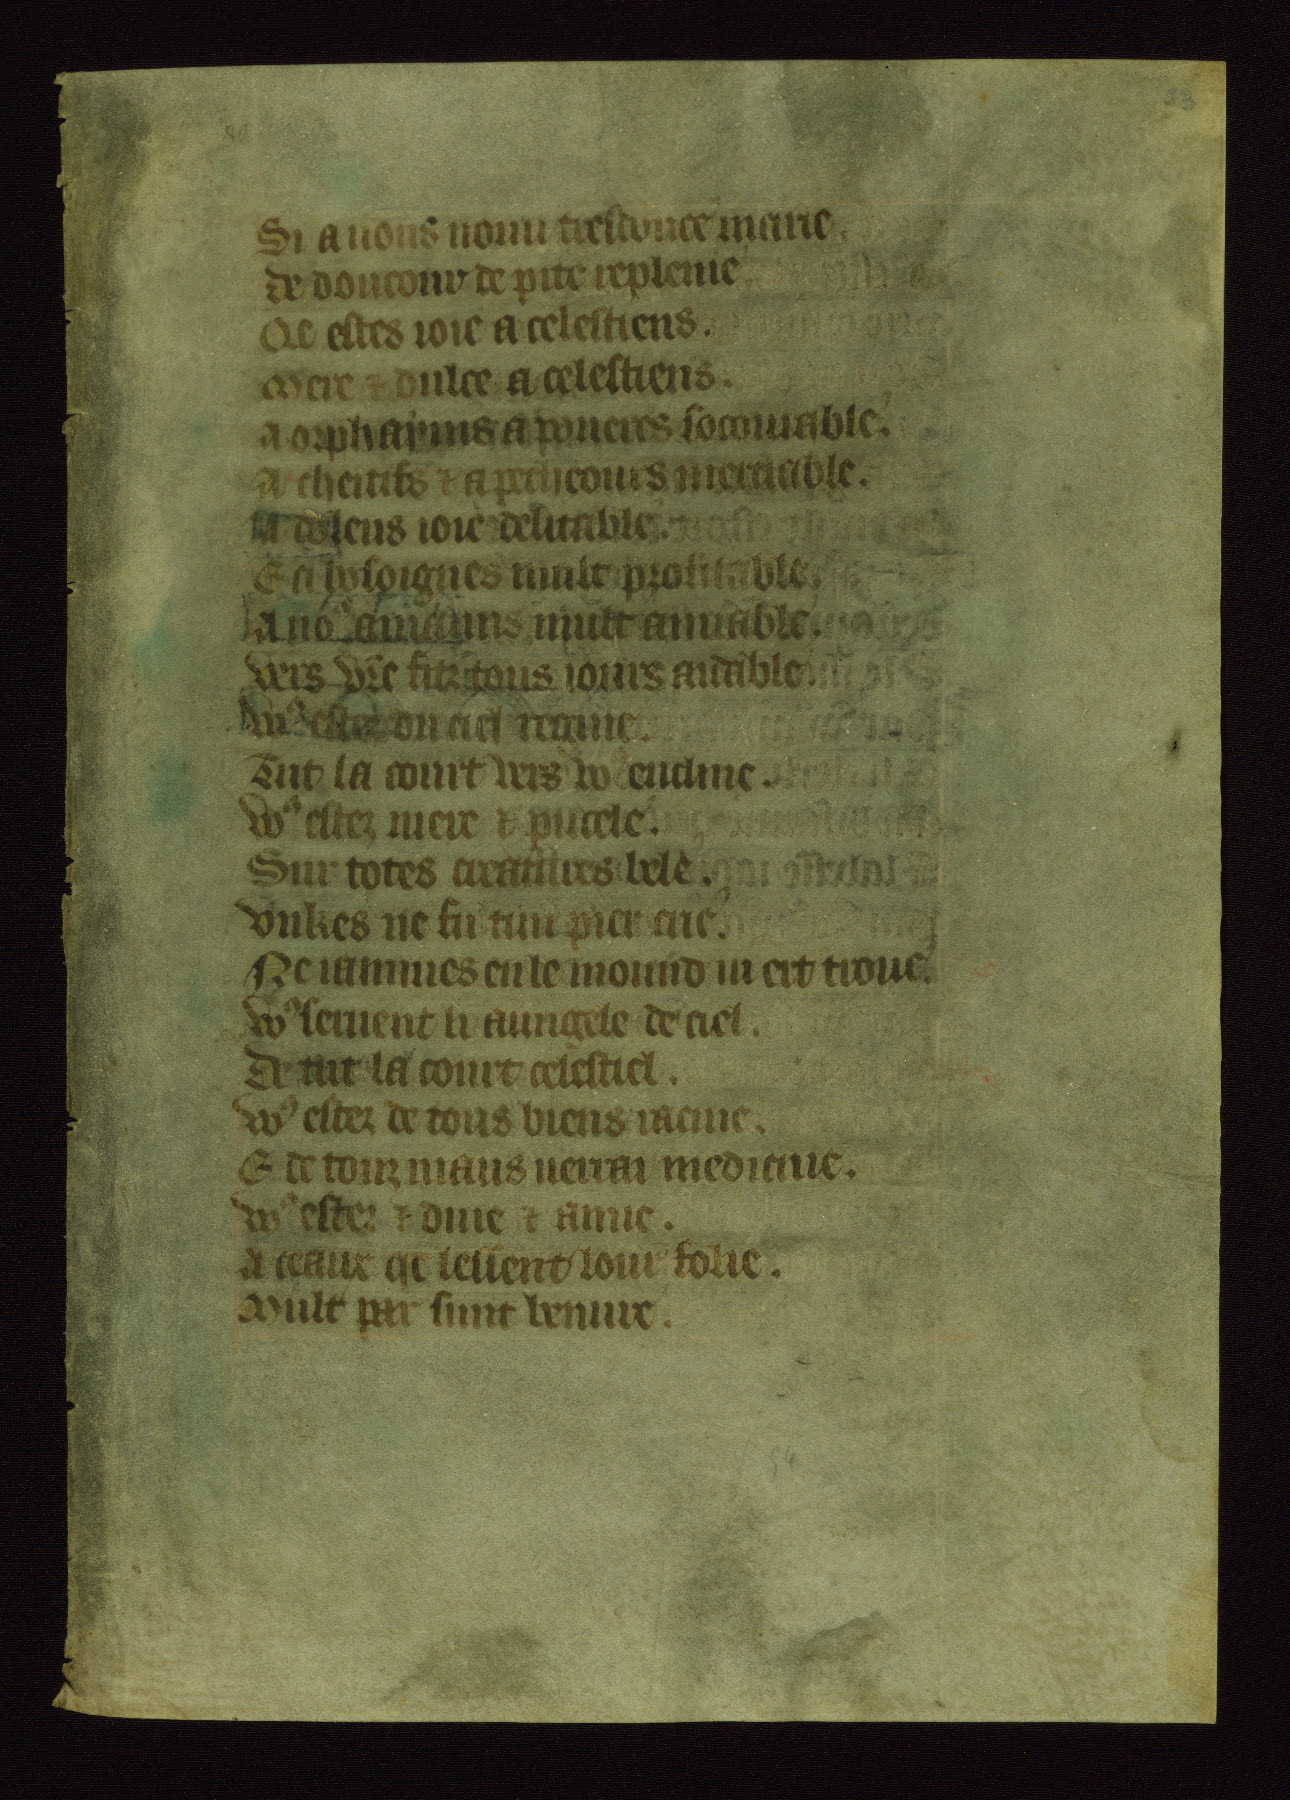 53
Si auons nonn tresdouce marie.
De doucour de pite replenie
Qe estes ioie a celestiens.
Mere & dulce a celestiens.
A orphayms a poueres socourable.
A cheitifs & a pechcours merciable.
A dolens ioie delitable.
E a bosoignes mult profitable.
A uoˢ amiable.
Vers vr̃e fitz tous iours aidable.
Voˢ estez du ciel regine.
Tut la court vers voˢ encline.
Voˢ estez mere & pucele.
Sur totes creatures bele.
Vnkes ne fu tiiu pier cne.
Ne iammes en le mound ni ert troue.
Voˢ seruent li aungele de ciel.
De tut la court celestiel.
Voˢ estez de tous biens racine.
E de touz maus uerrai medicine.
Voˢ estez & dme & amie.
A ceaux qe leissent lour folie.
Mult par sunt benure.
54